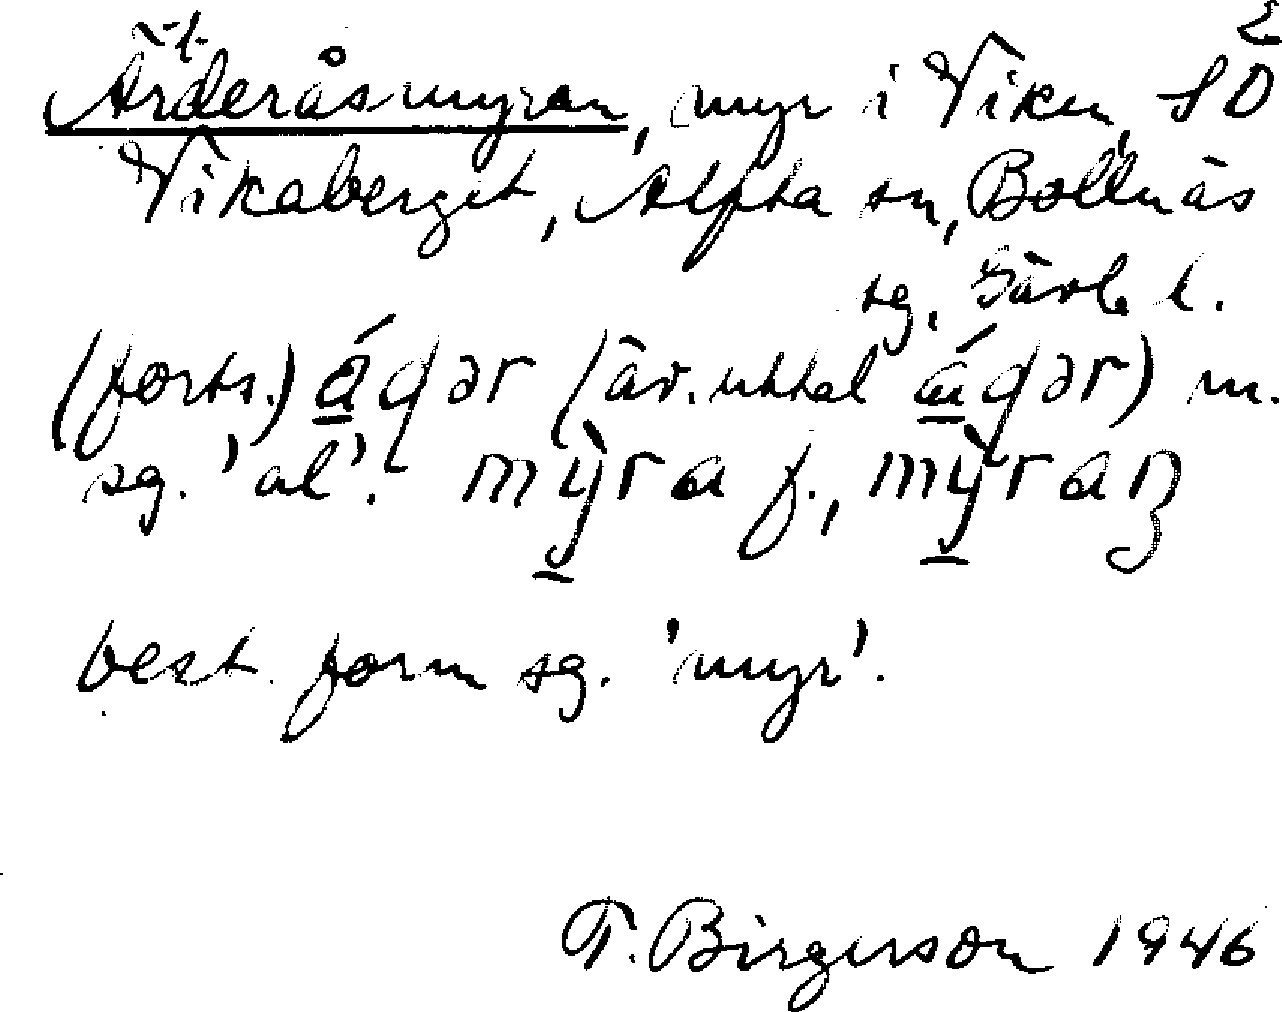 Ärderåsmyran, myr i Viken, SO
Vikaberget, Alfta sn, Bollnäs
sg, Gävle l.
(forts.) áɖər (äv. uttal ǽɖər) m.
sg. 'al'. mỳra f., mỳraɳ
best. form sg. 'myr'.
T. Birgerson 1946